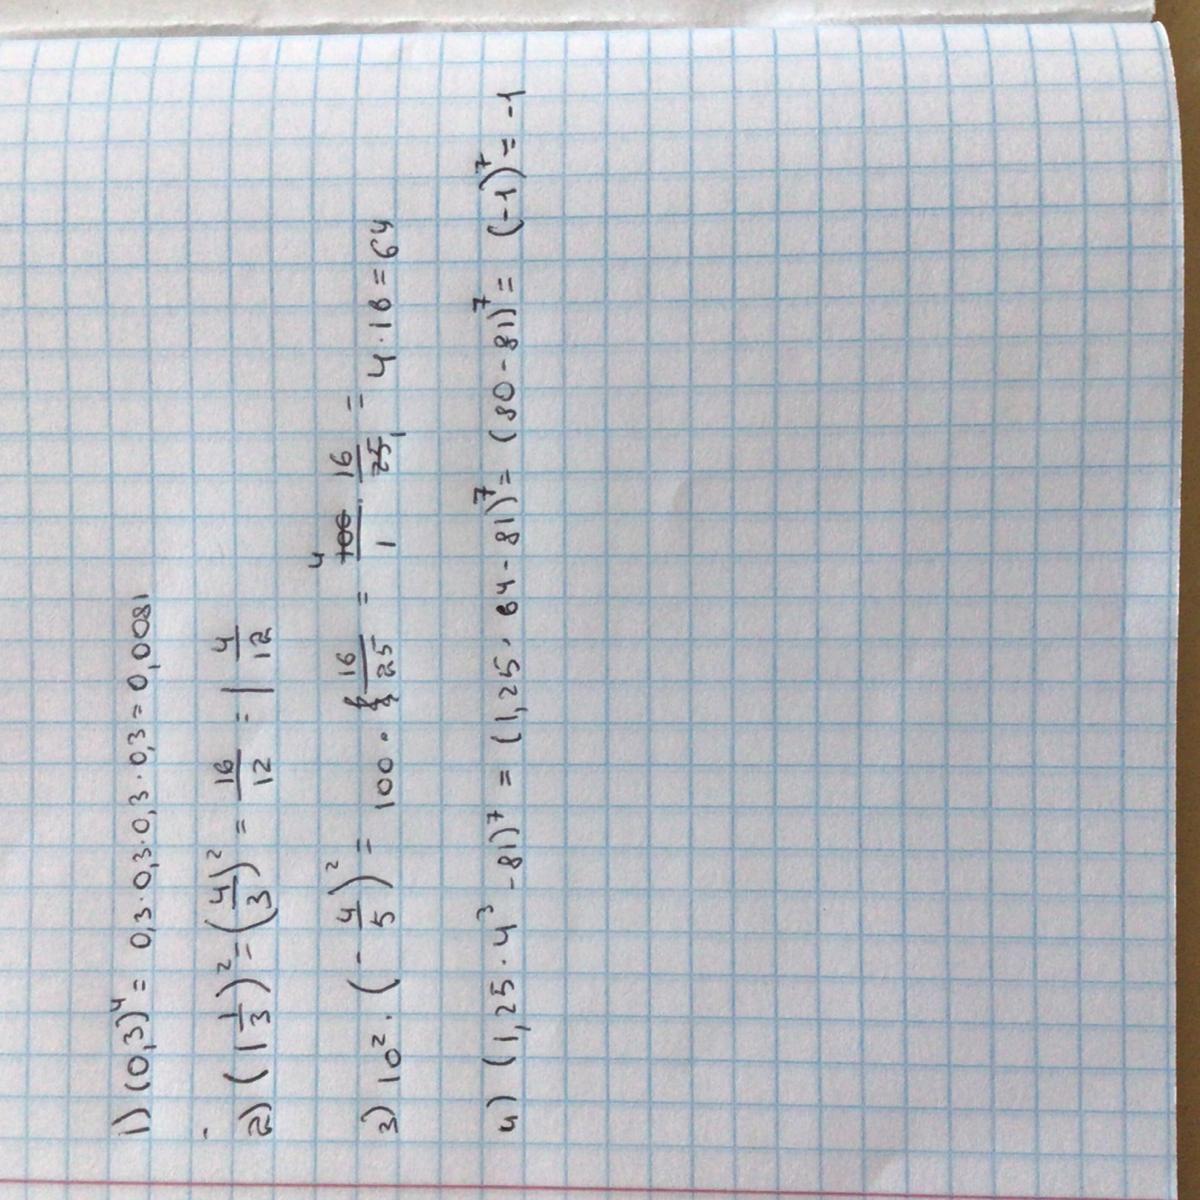 1) (0,3)⁴ = 0,3·0,3·0,3·0,3 = 0,0081
2) (1 1/3)² = (4/3)² = 16/12 = 1 4/12
3) 10² · (- 4/5)² = 100 · 16/25 = 100/1 · 16/25 = 4·16 = 64
4) (1,25 · 4³ - 81)⁷ = (1,25 · 64 - 81)⁷ = (80 - 81)⁷ = (-1)⁷ = -1